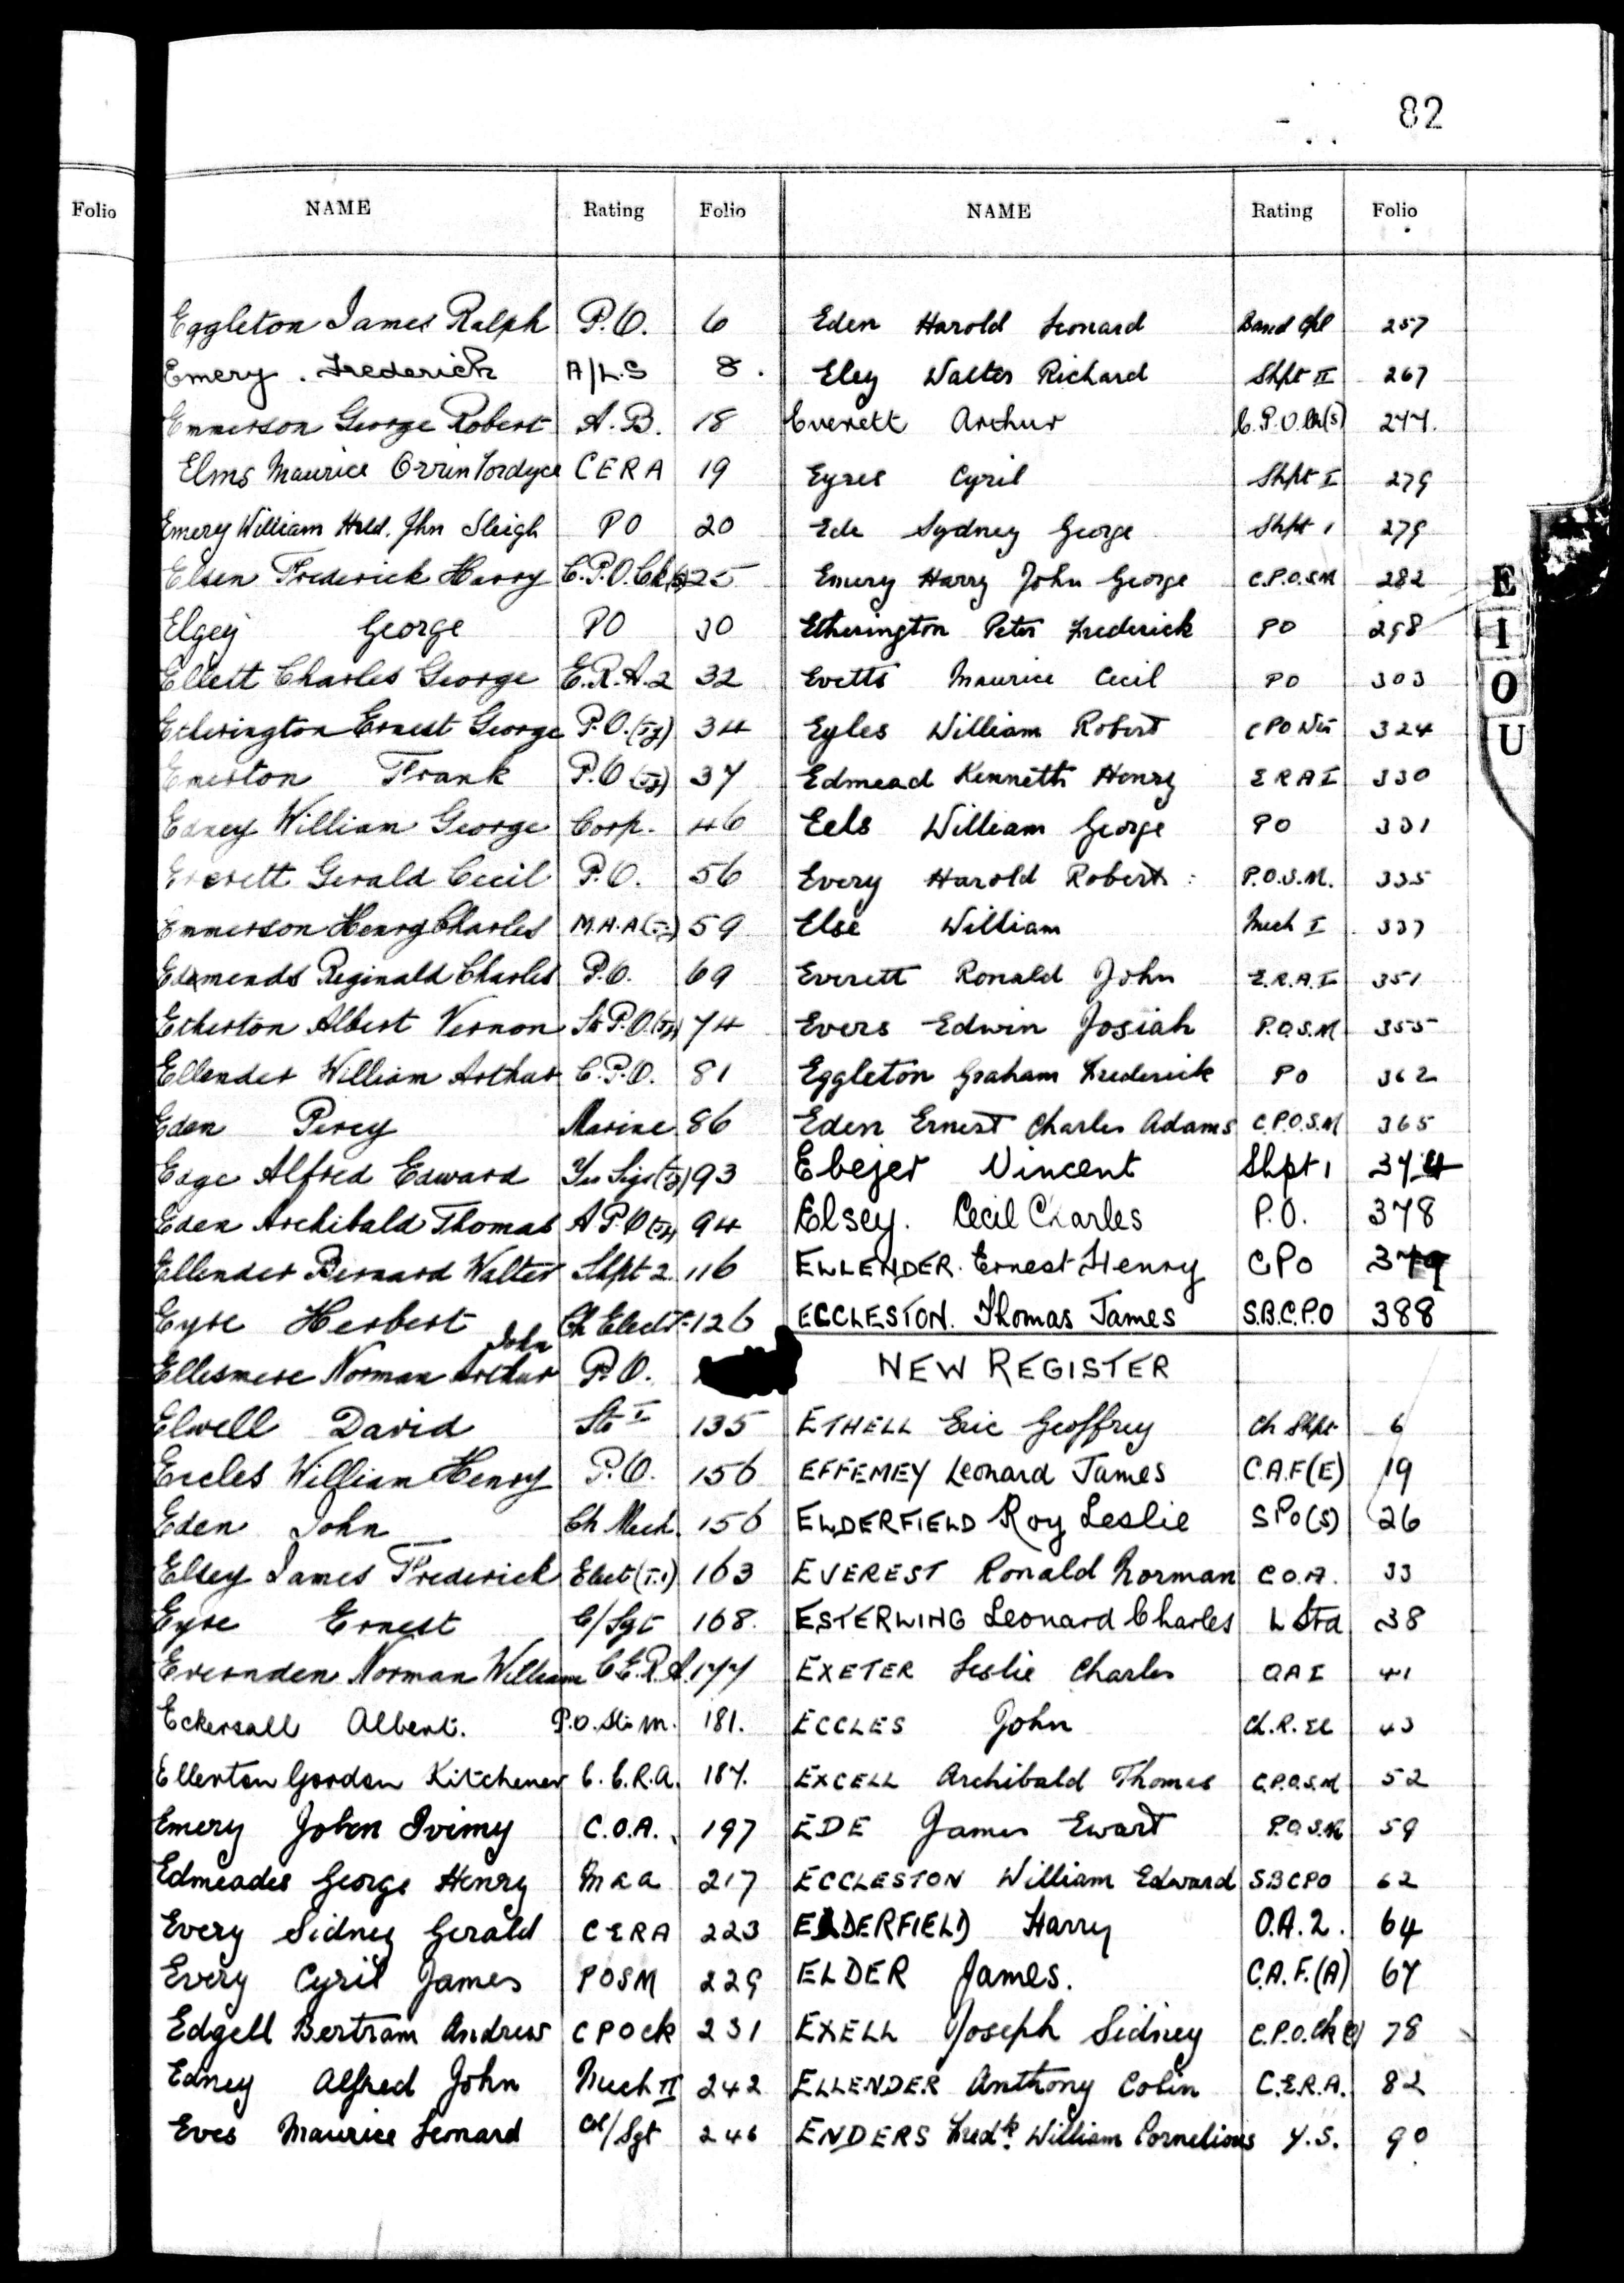 82
Folio
NAME Rating Folio
Eggleton James Ralph P.O. 6
Emery . Frederick A/L.S 8.
Emmerson George Robert A.B. 18
Elms Maurice Orrin Fordyce CERA 19
Emery William Hrld. Jhn Sleigh PO 20
Elsen Frederick Harry C.P.O.Ck(s) 25
Elgey George PO 30
Ellett Charles George E.R.A.2 32
Etherington Ernest George P.O.(Ty) 34
Emerton Frank P.O(Ty) 37
Edney William George Corp. 46
Everett Gerald Cecil P.O. 56
Emmerson Henry Charles M.A.A(Ty) 59
Edmends Reginald Charles P.O. 69
Etherton Albert Vernon St.P.O.(Ty) 74
Ellender William Arthur C.P.O. 81
Eden Percy Marine 86
Edge Alfred Edward Yeo Sigs(Ty) 93
Eden Archibald Thomas A P.O(Ty) 94
Ellender Bernard Walter Shpt 2. 116
Eyre Herbert Ch Elect: 126
Ellesmere Norman John Arthur P.O.
Elwell David Sto I 135
Eccles William Henry P.O. 156
Eden John Ch Mech. 156
Elsey James Frederick Elect(T.1) 163
Eyre Ernest C/Sgt 168.
Evernden Norman William C.E.R.A. 177
Eckersall Albert. P.O.Sto M. 181.
Ellerton Gordon Kitchener C.E.R.A. 187.
Emery John Ivimy C.O.A. 197
Edmeades George Henry Maa 217
Every Sidney Gerald CERA 223
Every Cyril James POSM 229
Edgell Bertram Andrew CPOck 231
Edney Alfred John Mech II 242
Eves Maurice Leonard Col/Sgt 246
NAME Rating Folio
Eden Harold Leonard Band Cpl 257
Eley Walter Richard Shpt II 267
Everett Arthur C.P.O.Ck(s) 277.
Eyres Cyril Shpt I 279
Ede Sydney George Shpt 1 279
Emery Harry John George C.P.O.S.M 282
Etherington Peter Frederick PO 298
Evetts Maurice Cecil PO 303
Eyles William Robert CPO Wtr 324
Edmead Kenneth Henry ERA I 330
Eels William George PO 331
Every Harold Robert P.O.S.M. 335
Else William Mech I 337
Everett Ronald John E.R.A.I 351
Evers Edwin Josiah P.O.S.M 355
Eggleton Graham Frederick PO 362
Eden Ernest Charles Adams C.P.O.S.M 365
Ebejer Vincent Shpt 1 374
Elsey. Cecil Charles P.O. 378
ELLENDER. Ernest Henry CPO 379
ECCLESTON. Thomas James S.B.C.P.O 388
NEW REGISTER
ETHELL Eric Geoffrey Ch Shpt 6
EFFEMEY Leonard James C.A.F(E) 19
ELDERFIELD Roy Leslie SPO(S) 26
EVEREST Ronald Norman C.O.A. 33
ESTERLING Leonard Charles L Std 38
EXETER Leslie Charles OAI 41
ECCLES John Ch.R.El 43
EXCELL Archibald Thomas C.P.O.S.M 52
EDE James Ewart P.O.S.M 59
ECCLESTON William Edward SBCPO 62
ELDERFIELD Harry O.A.2. 64
ELDER James. C.A.F.(A) 67
EXELL Joseph Sidney C.P.O.Ck(s) 78
ELLENDER Anthony Colin C.E.R.A. 82
ENDERS Fredk. William Cornelious Y.S. 90
E
I
O
U